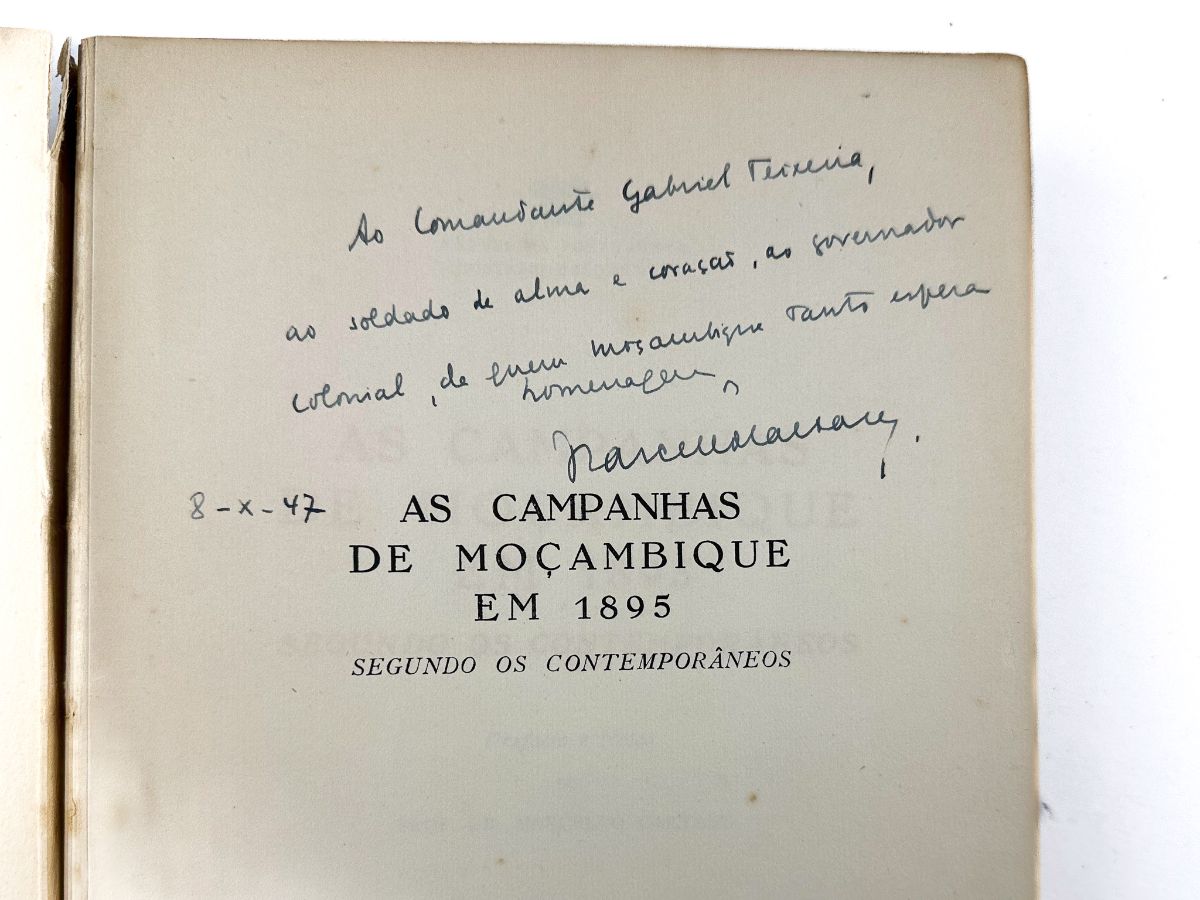 Ao Comandante Gabriel Teixeira,
ao soldado de alma e coração, ao governador
colonial, de quem Moçambique tanto espera
homenagem
Marcello Caetano
8-X-47
AS CAMPANHAS
DE MOÇAMBIQUE
EM 1895
SEGUNDO OS CONTEMPORÂNEOS